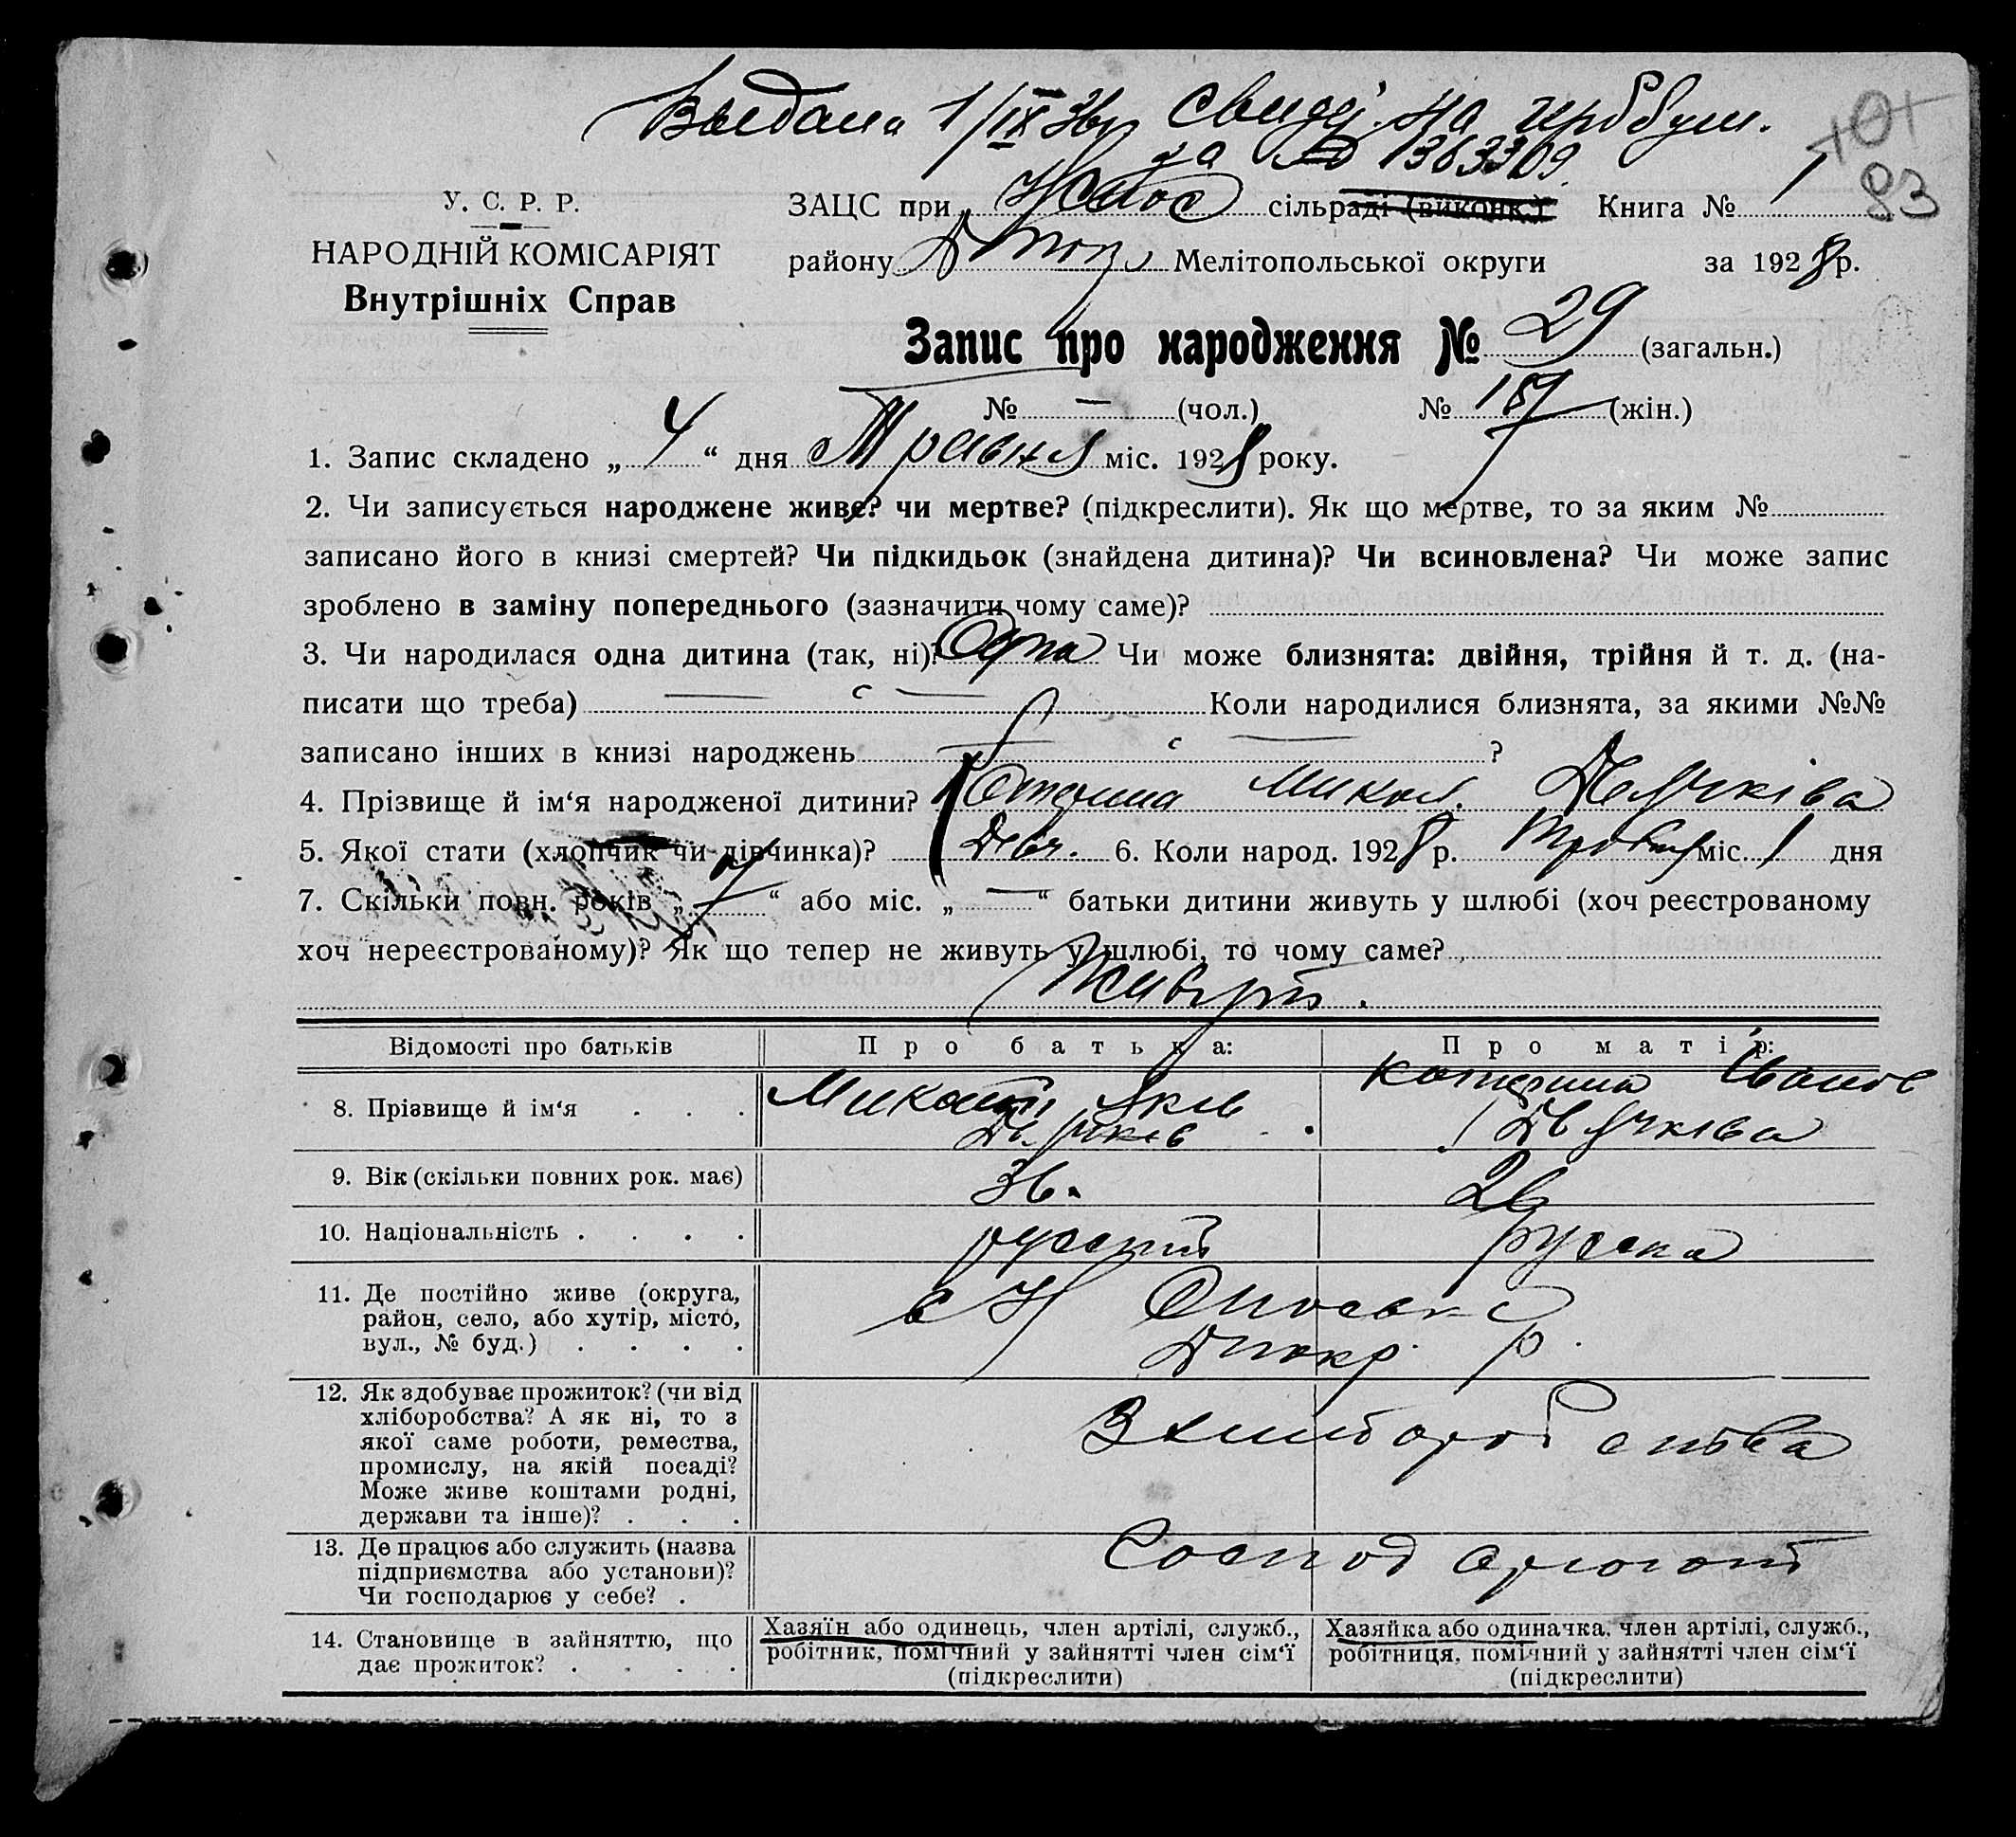 Выдана 1/IX 36 р свидет. на
за № 1363309
101
83
У. С. Р. Р.
НАРОДНІЙ КОМІСАРІЯТ
Внутрішніх Справ
ЗАЦС при сільраді (виконк.) Книга № 1
району Мелітопольської округи за 1928 р.
Запис про народження № 29 (загальн.)
№ — (чол.) № (жін.)
1. Запис складено „ 4 “ дня Травня міс. 1928 року.
2. Чи записується народжене живе? чи мертве? (підкреслити). Як що мертве, то за яким №
записано його в книзі смертей? Чи підкидьок (знайдена дитина)? Чи всиновлена? Чи може запис
зроблено в заміну попереднього (зазначити чому саме)?
3. Чи народилася одна дитина (так, ні)? Одна Чи може близнята: двійня, трійня й т. д. (на-
писати що треба) Коли народилися близнята, за якими №№
записано інших в книзі народжень ?
4. Прізвище й ім‘я народженої дитини? Микол.
5. Якої стати (хлопчик чи дівчинка)? Девч. 6. Коли народ. 1928 р. Травня міс. 1 дня
7. Скільки повн. років „ 7 “ або міс. „ — “ батьки дитини живуть у шлюбі (хоч реєстрованому
хоч нереєстрованому)? Як що тепер не живуть у шлюбі, то чому саме?
Живуть.
Відомості про батьків Про батька: Про матір:
8. Прізвище й ім‘я . . . Микола Яков Катерина Іванов
9. Вік (скільки повних рок. має) 36. 26
10. Національність . . . . русский русска
11. Де постійно живе (округа,
район, село, або хутір, місто,
вул., № буд.) . . . .
12. Як здобуває прожиток? (чи від
хліборобства? А як ні, то з
якої саме роботи, ремества,
промислу, на якій посаді?
Може живе коштами родні,
держави та інше)? . . .
З хлиборобства
13. Де працює або служить (назва
підприємства або установи)?
Чи господарює у себе? .
14. Становище в зайняттю, що
дає прожиток? . . . .
Хазяїн або одинець, член артілі, служб.,
робітник, помічний у зайнятті член сім‘ї
(підкреслити)
Хазяйка або одиначка, член артілі, служб.,
робітниця, помічний у зайнятті член сім‘ї
(підкреслити)